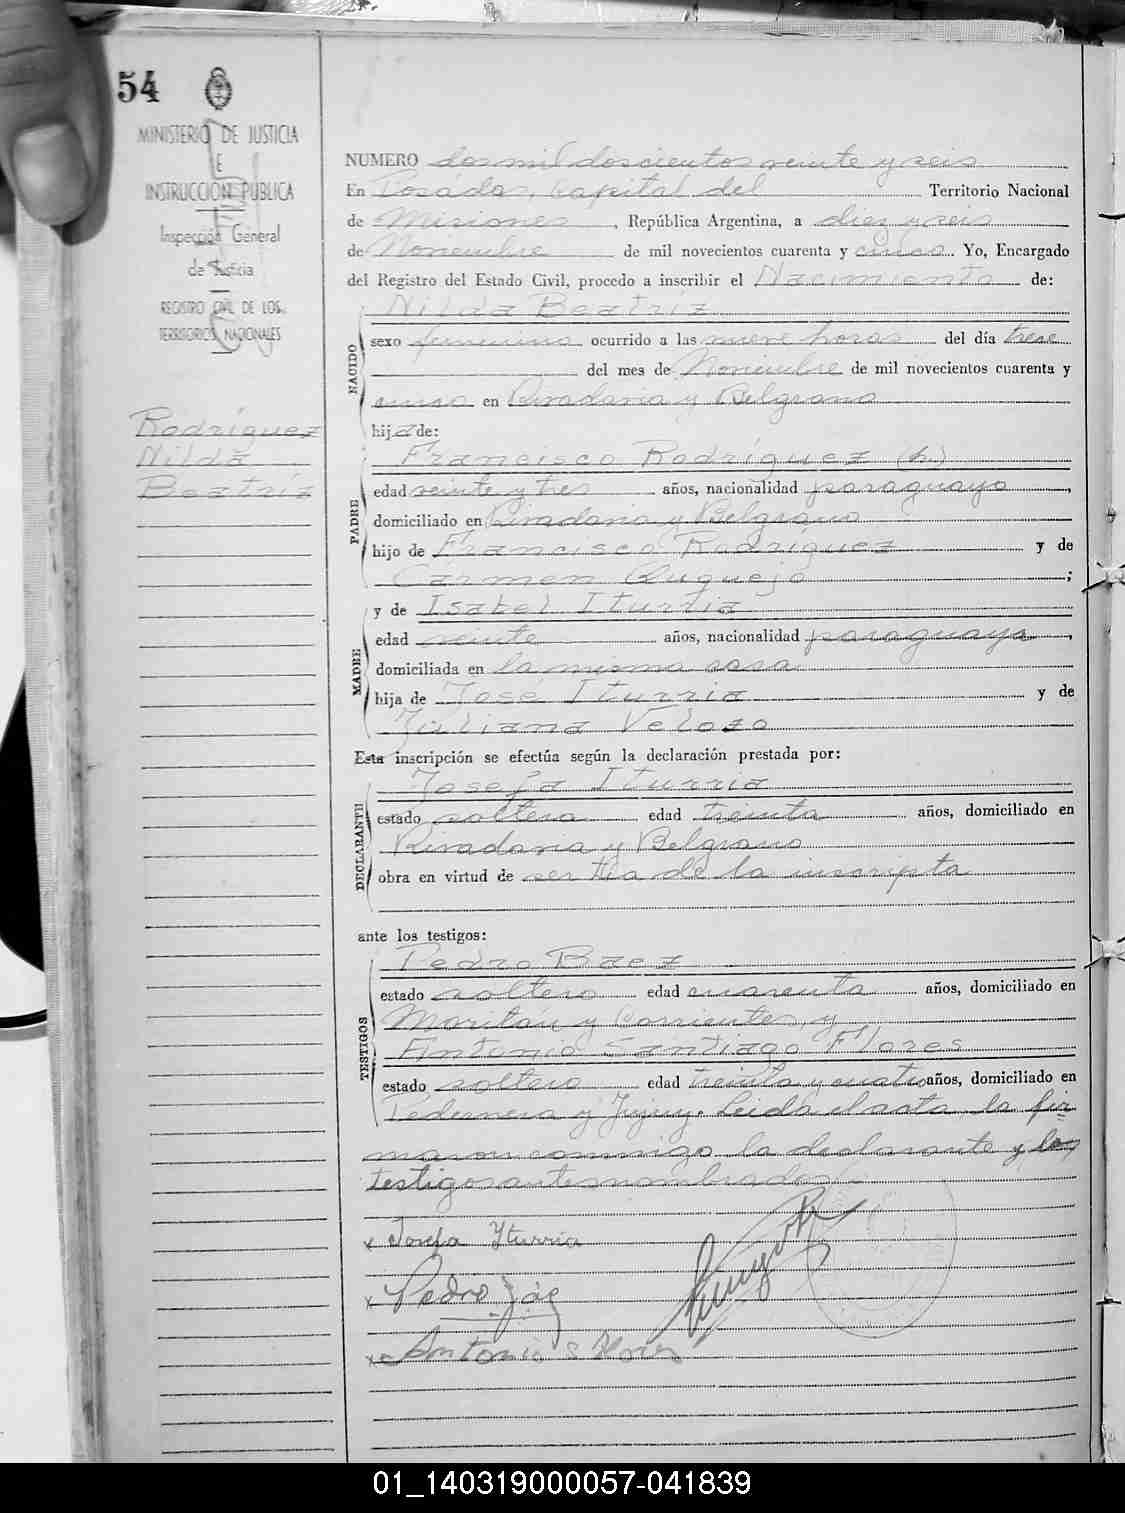 54
MINISTERIO DE JUSTICIA
E
INSTRUCCION PUBLICA
Inspección General
de Justicia
REGISTRO CIVIL DE LOS
TERRITORIOS NACIONALES
Rodríguez
Nilda
Beatriz
NUMERO dos mil doscientos veinte y seis
En Posadas, Capital del Territorio Nacional
de Misiones, República Argentina, a diez y seis
de Noviembre de mil novecientos cuarenta y cinco. Yo, Encargado
del Registro del Estado Civil, procedo a inscribir el Nacimiento de:
NACIDO
Nilda Beatriz
sexo femenino ocurrido a las nueve horas del día trece
del mes de Noviembre de mil novecientos cuarenta y
cinco en Rivadavia y Belgrano
hija de:
PADRE
Francisco Rodríguez (h.)
edad veinte y tres años, nacionalidad paraguayo,
domiciliado en Rivadavia y Belgrano
hijo de Francisco Rodríguez y de
Carmen ;
MADRE
y de Isabel Iturria
edad veinte años, nacionalidad paraguaya,
domiciliada en la misma casa
hija de José Iturria y de
Juliana Velozo
Esta inscripción se efectúa según la declaración prestada por:
DECLARANTE
Josefa Iturria
estado soltera edad treinta años, domiciliado en
Rivadavia y Belgrano
obra en virtud de ser tía de la inscripta
ante los testigos:
TESTIGOS
Pedro Baez
estado soltero edad cuarenta años, domiciliado en
y Corrientes, y
Antonio Santiago Flores
estado soltero edad treinta y cuatro años, domiciliado en
Pedernera y Jujuy. Leida el acta la fir
maron conmigo la declarante y los
testigos antes nombrados.
x Josefa Yturria
x Pedro
x Antonio S Flores
01_140319000057-041839